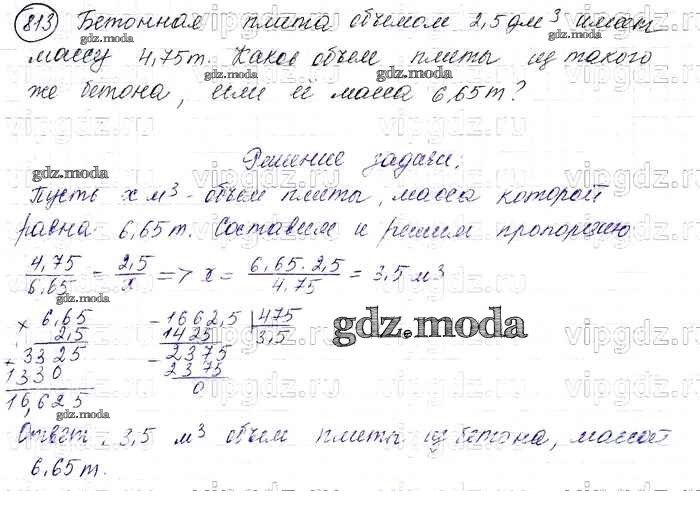 813 Бетонная плита объемом 2,5 дм³ имеет
массу 4,75т. Каков объем плиты из такого
же бетона, если её масса 6,65т?
Решение задачи:
Пусть x м³ - объем плиты, масса которой
равна 6,65т. Составим и решим пропорцию
4,75/6,65 = 2,5/x => x = 6,65·2,5/4,75 = 3,5 м³
× 6,65 - 1662,5 | 475
2,5 1425 3,5
+ 3325 - 2375
1330 2375
16,625 0
Ответ: 3,5 м³ объем плиты из бетона, массой
6,65т.
gdz.moda
vipgdz.ru